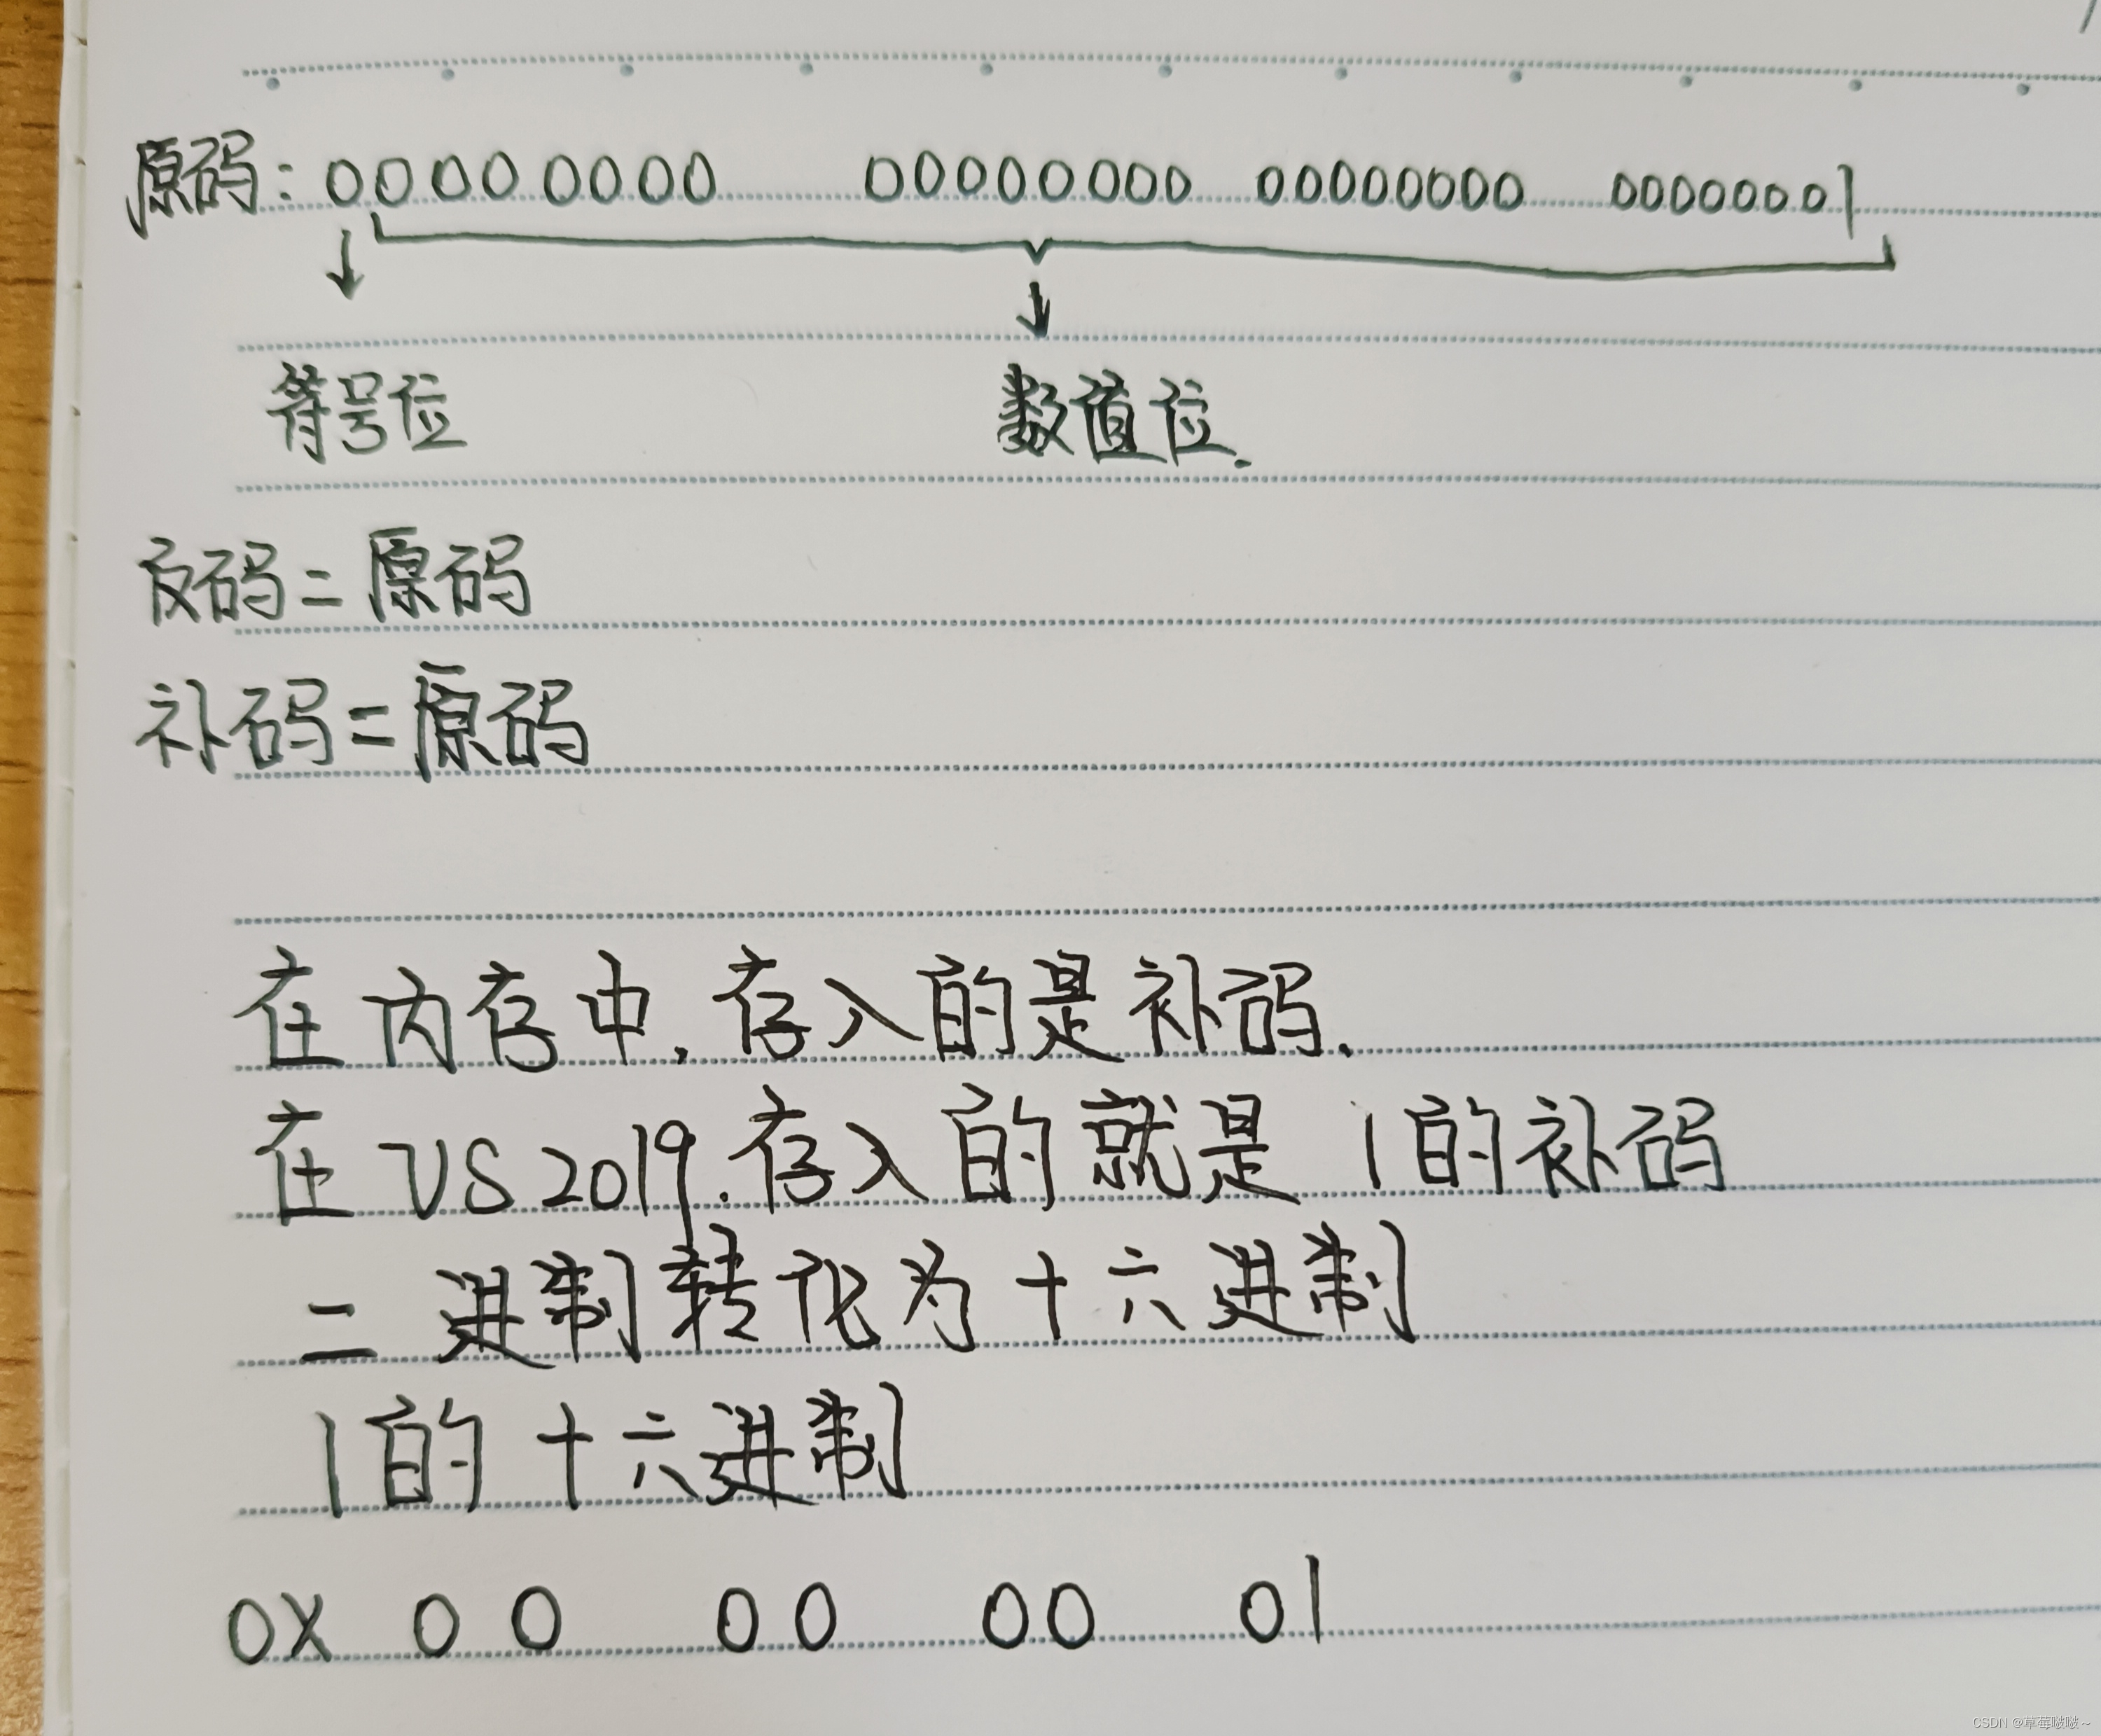 原码: 00000000 00000000 00000000 00000001
符号位 数值位.
反码=原码
补码=原码
在内存中,存入的是补码.
在VS2019.存入的就是1的补码
二进制转化为十六进制
1的十六进制
0X 00 00 00 01
CSDN @草莓啵啵~